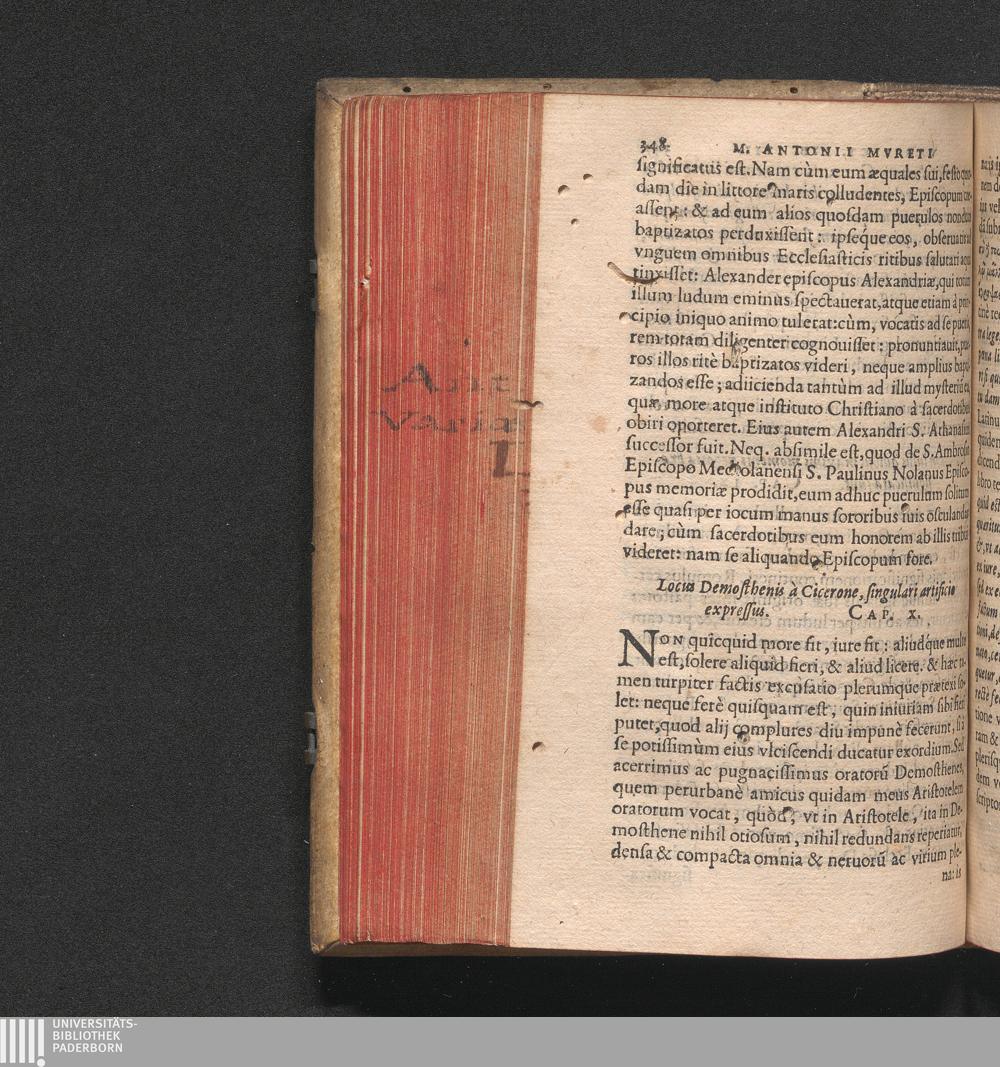 348 M. ANTONII MVRETI
significatus est. Nam cùm eum æquales sui, festo quo-
dam die in littore maris colludentes, Episcopum cre-
assent: & ad eum alios quosdam puerulos nondum
baptizatos perduxissent: ipséque eos, obseruatis ad
vnguem omnibus Ecclesiasticis ritibus salutari aqua
tinxisset: Alexander episcopus Alexandriæ, qui totum
illum ludum eminus spectauerat, atque etiam à prin-
cipio iniquo animo tulerat: cùm, vocatis ad se pueris,
rem totam diligenter cognouisset: pronuntiauit, pue-
ros illos ritè baptizatos videri, neque amplius bapti-
zandos esse; adiicienda tantùm ad illud mysterium ea,
quæ more atque instituto Christiano à sacerdotibus
obiri oporteret. Eius autem Alexandri S. Athanasius
successor fuit. Neq. absimile est, quod de S. Ambrosio
Episcopo Mediolanensi S. Paulinus Nolanus Episco-
pus memoriæ prodidit, eum adhuc puerulum solitum
esse quasi per iocum manus sororibus suis osculandas
dare; cùm sacerdotibus eum honorem ab illis tribui
videret: nam se aliquando Episcopum fore.
Locus Demosthenis à Cicerone, singulari artificio
expressus. CAP. X.
NON quicquid more fit, iure fit: aliudq́ue multo
est, solere aliquid fieri, & aliud licere. & hæc ta-
men turpiter factis excusatio plerumque prætexi so-
let: neque ferè quisquam est, quin iniuriam sibi fieri
putet, quod alij complures diu impunè fecerunt, si à
se potissimùm eius vlciscendi ducatur exordium. Sed
acerrimus ac pugnacissimus oratorũ Demosthenes,
quem perurbanè amicus quidam meus Aristotelem
oratorum vocat, quòd, vt in Aristotele, ita in De-
mosthene nihil otiosum, nihil redundans reperiatur,
densa & compacta omnia & neruorũ ac virium ple-
na: is
Ant
Varia
L
UNIVERSITÄTS-
BIBLIOTHEK
PADERBORN